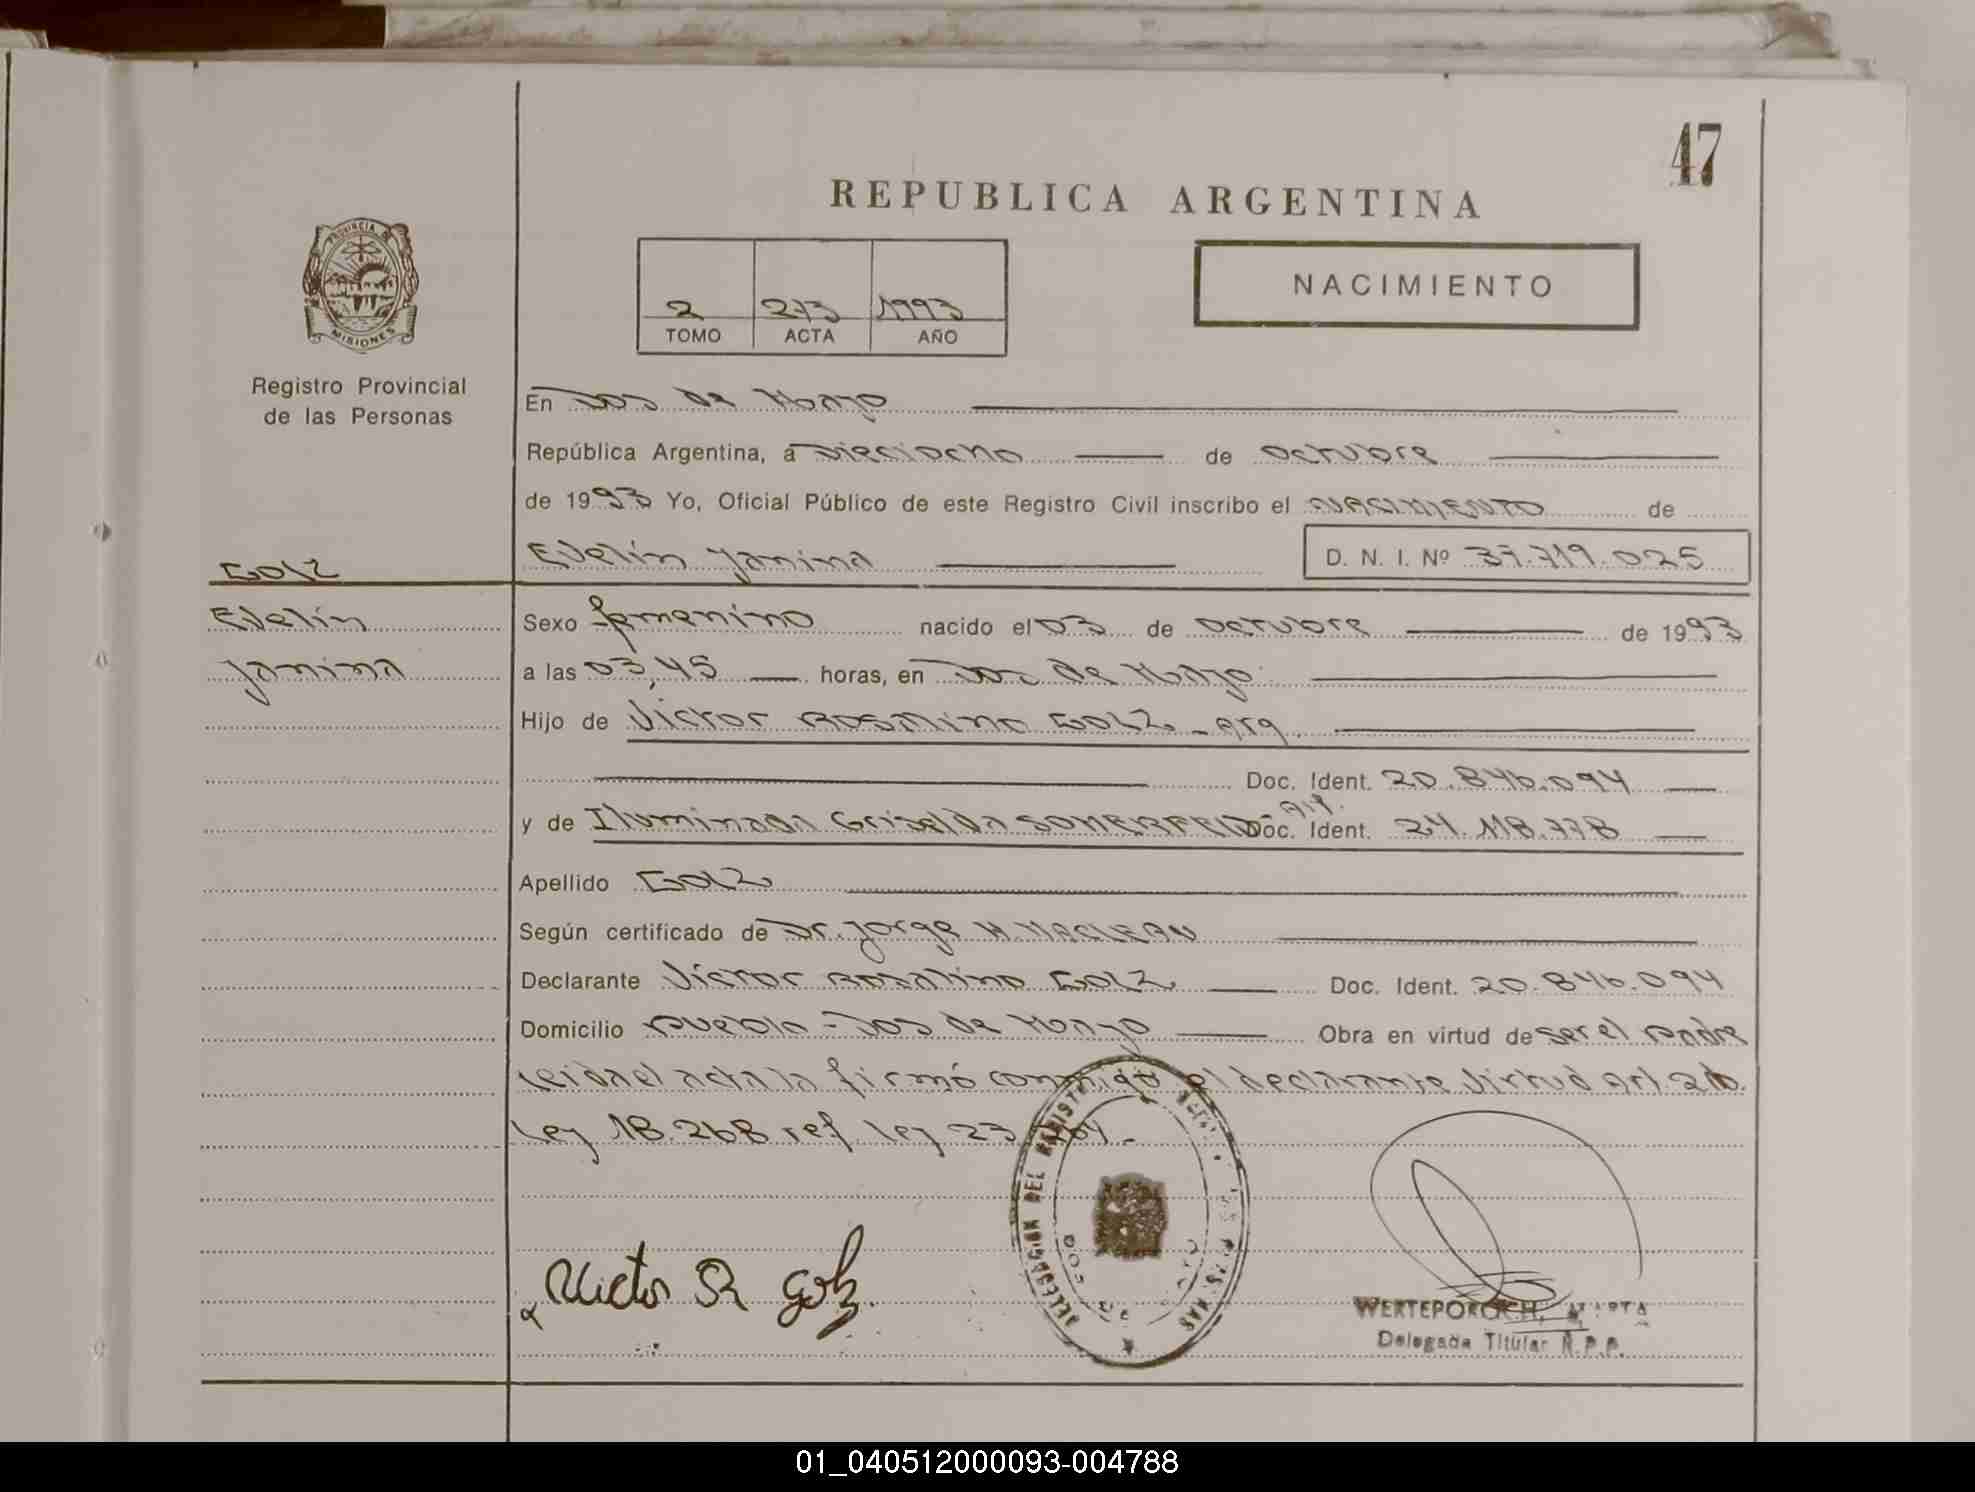 47
REPUBLICA ARGENTINA
PROVINCIA DE
MISIONES
Registro Provincial
de las Personas
2 273 1993
TOMO ACTA AÑO
NACIMIENTO
En Dos de Mayo
República Argentina, a Dieciocho de octubre
de 1993 Yo, Oficial Público de este Registro Civil inscribo el NACIMIENTO de
GOLZ
Evelin Janina D. N. I. Nº 37.719.025
Evelín
Janina
Sexo femenino nacido el 03 de octubre de 1993
a las 03,45 horas, en Dos de Mayo
Hijo de Victor Rosalino GOLZ - Arg
Doc. Ident. 20.846.094
y de Iluminada Griselda SOMERFELD - Arg. Doc. Ident. 24.118.778
Apellido GOLZ
Según certificado de Dr. Jorge H. MACLEAN
Declarante Víctor Rosalino GOLZ Doc. Ident. 20.846.094
Domicilio Pueblo - Dos de Mayo Obra en virtud de ser el padre
leida el acta la firmó conmigo el declarante virtud Art.
Ley 18.268 ref ley 23
DELEGACION DEL REGISTRO
DOS DE
Victor R Golz
WERTEPOROCH, MARTA
Delegada Titular R.P.P.
01_040512000093-004788